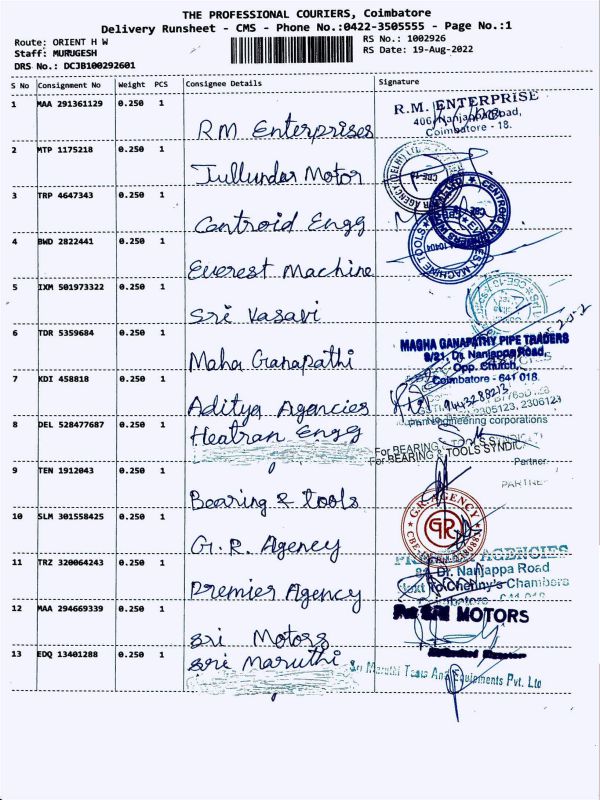 THE PROFESSIONAL COURIERS, Coimbatore
Delivery Runsheet - CMS - Phone No.:0422-3505555 - Page No.:1
Route: ORIENT H W
RS No.: 1002926
Staff: MURUGESH
RS Date: 19-Aug-2022
DRS No.: DCJB100292601
S No Consignment No Weight PCS Consignee Details Signature
1 MAA 291361129 0.250 1
R.M. ENTERPRISE
406, Nanjappa Road,
Coimbatore - 18.
RM Enterprises
2 MTP 1175218 0.250 1
Jullundar Motor
3 TRP 4647343 0.250 1
Centroid Engg
4 BWD 2822441 0.250 1
Everest Machine
5 IXM 501973322 0.250 1
Sri Vasavi
6 TDR 5359684 0.250 1
MAGHA GANAPATHY PIPE TRADERS
9/21, Dr. Nanjappa Road,
Opp. Church,
Coimbatore - 641 018.
Maha Ganapathi
7 KDI 458818 0.250 1
9443288213
2305123, 2306123
Aditya Agencies
8 DEL 528477687 0.250 1
engineering corporations
Heatran Engg
For BEARING & TOOLS SYNDICATE
For BEARING & TOOLS SYNDIC
Partner
9 TEN 1912043 0.250 1
Bearing & tools
10 SLM 301558425 0.250 1
G.R. AGENCY
GR
G.R. Agency
11 TRZ 320064243 0.250 1
AGENCIES
Dr. Nanjappa Road
Next To Chenny's Chambers
Premier Agency
12 MAA 294669339 0.250 1
MOTORS
Sri Motors
13 EDQ 13401288 0.250 1
Sri Maruthi
Sri Maruthi Tools And Equipments Pvt. Ltd